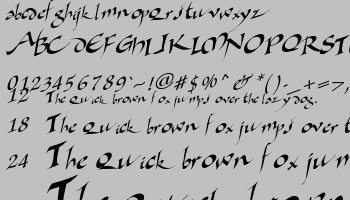 abcdefghijklmnopqrstuvwxyz
ABCDEFGHIJKLMNOPQRST
0123456789`~!@#$%^&*()-_+=>,
12 The quick brown fox jumps over the lazy dog.
18 The quick brown fox jumps over the
24 The quick brown fox jum
The quick brown